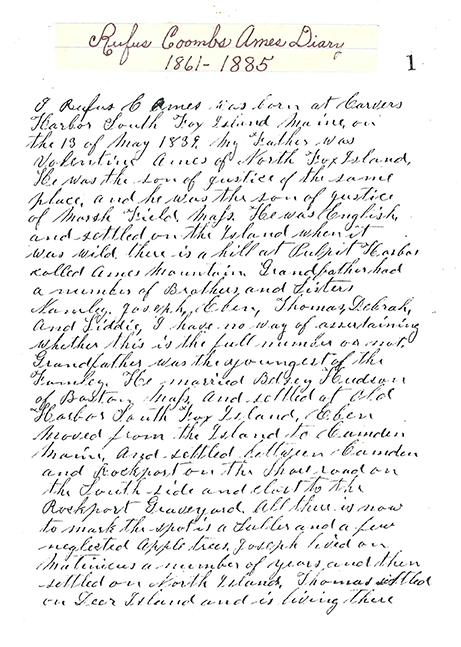 Rufus Coombs Ames Diary
1861-1885
1
I Rufus C Ames was born at Carvers
Harbor South Fox Island Maine, on
the 13 of May 1839, My Father was
Valentine Ames of North Fox Island,
He was the son of Justice of the same
place, and he was the son of Justice
of Marsh Field, Mass. He was English,
and settled on the Island when it
was wild, there is a hill at Pulpit Harbor
called Ames Mountain, Grandfather had
a number of Brothers, and Sisters
Namly, Joseph, Eben, Thomas, Debrah,
And Liddie, I have no way of assertaining
whether this is the full number or not,
Grandfather was the youngest of the
Family. He married Betsey Hudson
of Boston Mass, and settled at Old
Harbor South Fox Island, Eben
moved from the Island to Camden
Maine, And settled between Camden
and Rockport on the Shore road on
the South side and clost to the
Rockport Graveyard, All there is now
to mark the spot is a and a few
neglected Apple trees, Joseph lived on
Matinicus a number of years, and then
settled on North Island, Thomas settled
on Deer Island and is living there